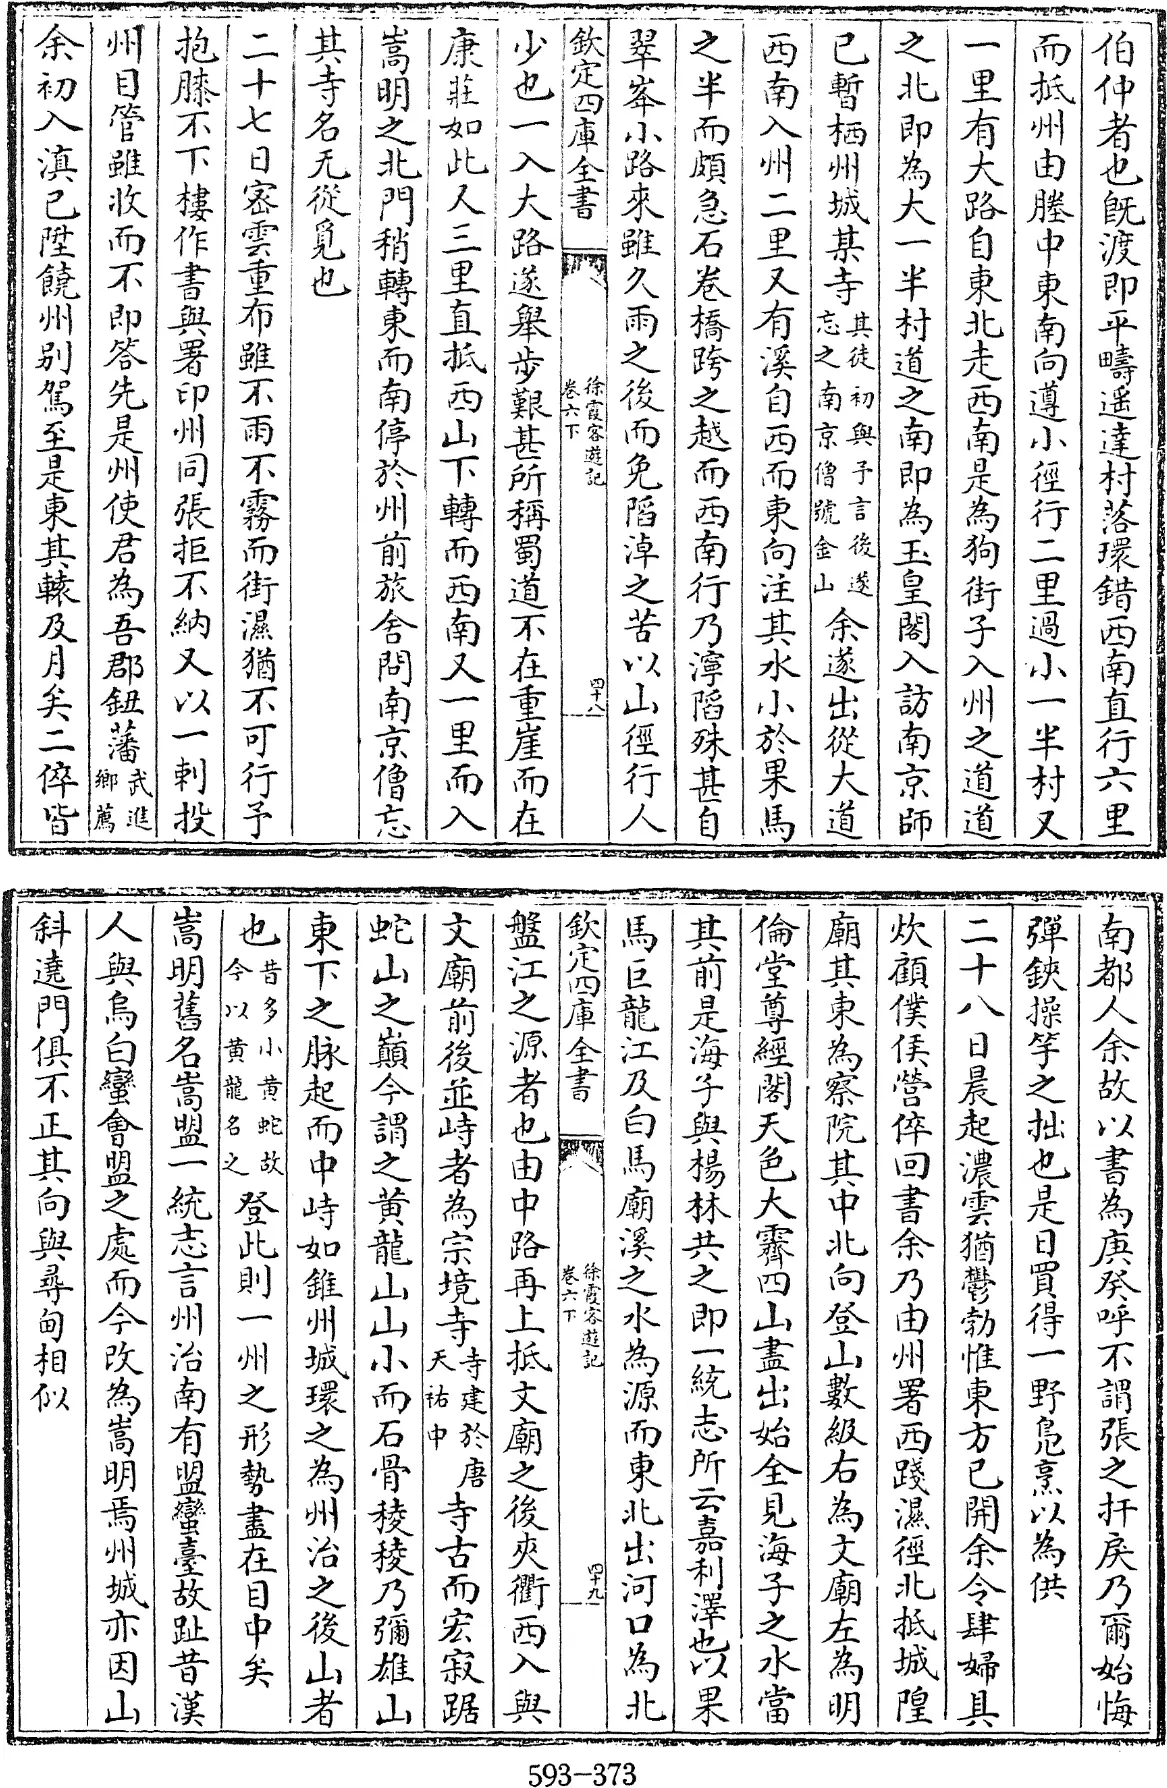 伯仲者也既渡即平疇遥達村落環錯西南直行六里
而抵州由塍中東南向遵小徑行二里過小一半村又
一里有大路自東北走西南是為狗街子入州之道道
之北即為大一半村道之南即為玉皇閣入訪南京師
已暫栖州城某寺其徒初與予言後遂忘之南京僧號金山余遂出從大道
西南入州二里又有溪自西而東向注其水小於果馬
之半而頗急石卷橋跨之越而西南行乃濘陷殊甚自
翠峯小路來雖久雨之後而免陷淖之苦以山徑行人
欽定四庫全書
徐霞客遊記
卷六下
四十八
少也一入大路遂舉步艱甚所稱蜀道不在重崖而在
康莊如此人三里直抵西山下轉而西南又一里而入
嵩明之北門稍轉東而南停於州前旅舍問南京僧忘
其寺名无從覓也
二十七日宻雲重布雖不雨不霧而街濕猶不可行予
抱膝不下樓作書與署印州同張拒不納又以一刺投
州目管雖收而不即答先是州使君為吾郡鈕藩武進鄉薦
余初入滇已陞饒州别駕至是東其轅及月矣二倅皆
南都人余故以書為庚癸呼不謂張之扞戾乃爾始悔
彈鋏操竽之拙也是日買得一野鳬烹以為供
二十八日晨起濃雲猶鬱勃惟東方已開余令肆婦具
炊顧僕俟營倅回書余乃由州署西踐濕徑北抵城隍
廟其東為察院其中北向登山數級右為文廟左為明
倫堂尊經閣天色大霽四山盡出始全見海子之水當
其前是海子與楊林共之即一統志所云嘉利澤也以果
馬巨龍江及白馬廟溪之水為源而東北出河口為北
欽定四庫全書
徐霞客遊記
卷六下
四十九
盤江之源者也由中路再上抵文廟之後夾衢西入與
文廟前後並峙者為宗境寺寺建於唐天祐中寺古而宏寂踞
蛇山之巔今謂之黄龍山山小而石骨稜稜乃彌雄山
東下之脉起而中峙如錐州城環之為州治之後山者
也昔多小黄蛇故今以黄龍名之登此則一州之形勢盡在目中矣
嵩明舊名嵩盟一統志言州治南有盟蠻臺故趾昔漢
人與烏白蠻會盟之處而今改為嵩明焉州城亦因山
斜遶門俱不正其向與尋甸相似
593-373